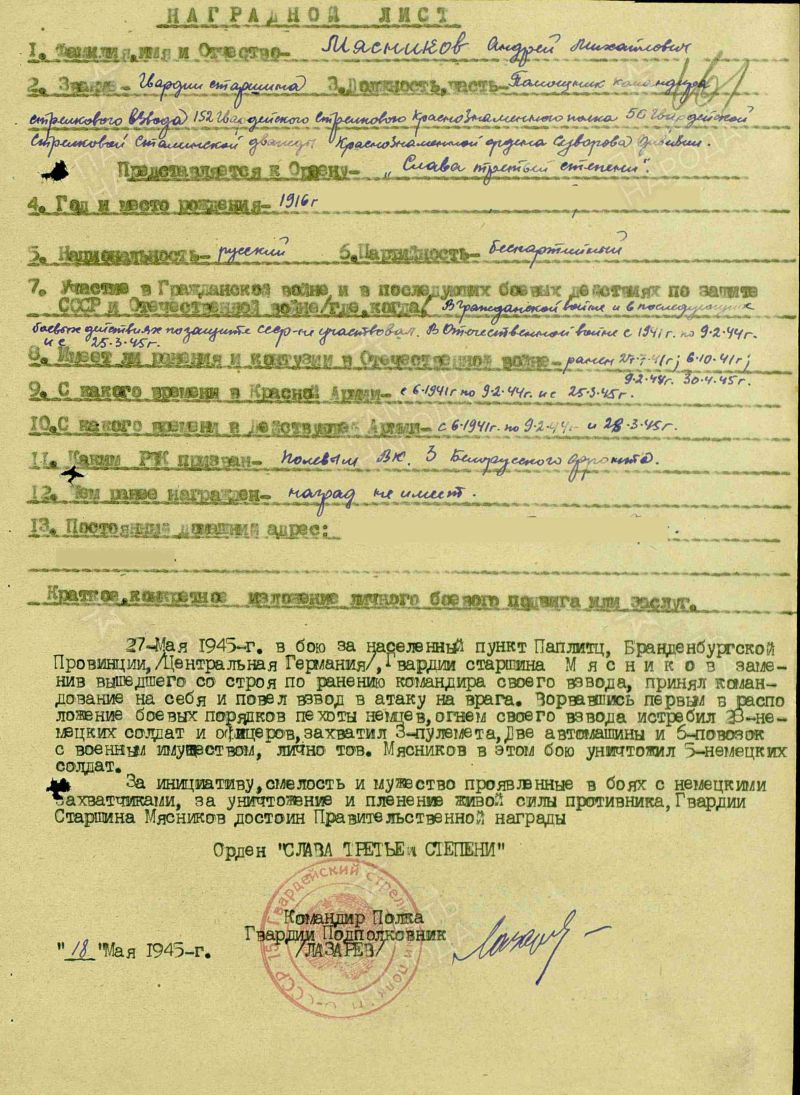 НАГРАДНОЙ ЛИСТ
1. Фамилия, имя и Отчество- Мясников Андрей Михайлович
2. Звание- Гвардии старшина 3. Должность, часть- Помощник командира
161
стрелкового взвода 152 Гвардейского Стрелкового Краснознаменного полка 50 Гвардейской
Стрелковой Сталинской дважды Краснознаменной ордена Суворова дивизии.
Представляется к Ордену- "Слава третьей степени".
4. Год и место рождения- 1916 г
5. Национальность- русский 6. Партийность- беспартийный
7. Участие в Гражданской войне и в последующих боевых действиях по защите
СССР и Отечественной войне/где, когда/ В Гражданской войне и в последующих
боевых действиях по защите ссср-не участвовал. В Отечественной войне с 1941 г. по 9-2-44г.
и с 25-3-45г.
8. Имеет ли ранения и контузии в Отечественной войне- ранен 27-7-41г; 6-10-41г;
9-2-44г. 30-4-45г.
9. С какого времени в Красной Армии- с 6-1941г по 9-2-44г. и с 25-3-45г.
10. С какого времени в Действующей Армии- с 6-1941г. по 9-2-44г и 28-3-45г.
11. Каким РВК призван- Полевым ВК. 3 Белорусского фронта.
12. Чем ранее награжден- наград не имеет.
13. Постоянный домашний адрес:
Краткое, конкретное изложение личного боевого подвига или заслуг.
27-Мая 1945-г. в бою за населенный пункт Паплитц, Бранденбургской
Провинции,/Центральная Германия/, Гвардии старшина Мясников заме-
нив вышедшего со строя по ранению командира своего взвода, принял коман-
дование на себя и повел взвод в атаку на врага. Ворвавшись первым в распо
ложение боевых порядков пехоты немцев, огнем своего взвода истребил 23-не-
мецких солдат и офицеров, захватил 3-пулемета, Две автомашины и 6-повозок
с военным имуществом, лично тов. Мясников в этом бою уничтожил 5-немецких
солдат.
За инициативу, смелость и мужество проявленные в боях с немецкими
захватчиками, за уничтожение и пленение живой силы противника, Гвардии
Старшина Мясников достоин Правительственной награды
Орден "СЛАВА ТРЕТЬЕЙ СТЕПЕНИ"
Командир Полка
Гвардии Подполковник
/ЛАЗАРЕВ/
"18" Мая 1945-г.